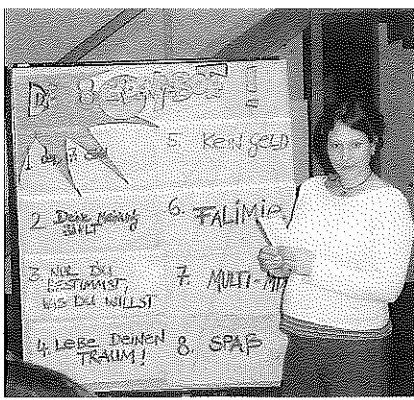 Die 8 GEBOTE !
1
2 Deine Meinung
zählt
3 NUR DU
BESTIMMST,
WAS DU WILLST
4. LEBE DEINEN
TRAUM!
5. KEIN GELD
6. FALIMIE
7. MULTI-
8. SPAß